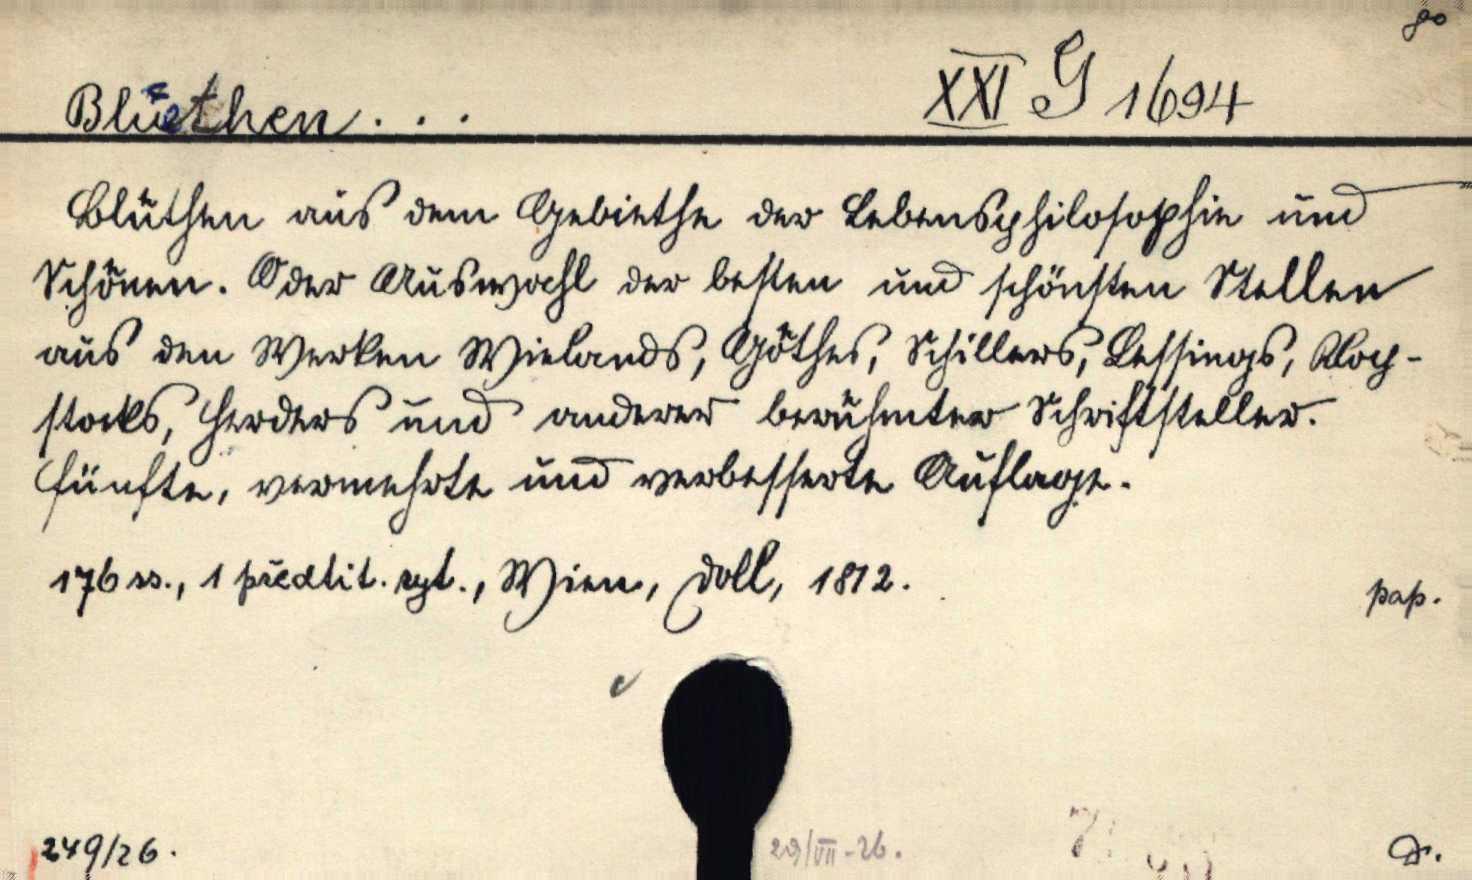 8°
Blüethen... XXI G 1694
Blüthen aus dem Gebiethe der Lebensphilosophie und
Schönen. Oder Auswahl der besten und schönsten Stellen
aus den Werken Wielands, Göthes, Schillers, Lessings, Klop-
stocks, Herders und anderer berühmter Schriftsteller.
Fünfte, vermehrte und verbesserte Auflage.
176 ss., 1 předtit. ryt., Wien, Doll, 1812.
pap.
249/26. 29/VII-26. D.